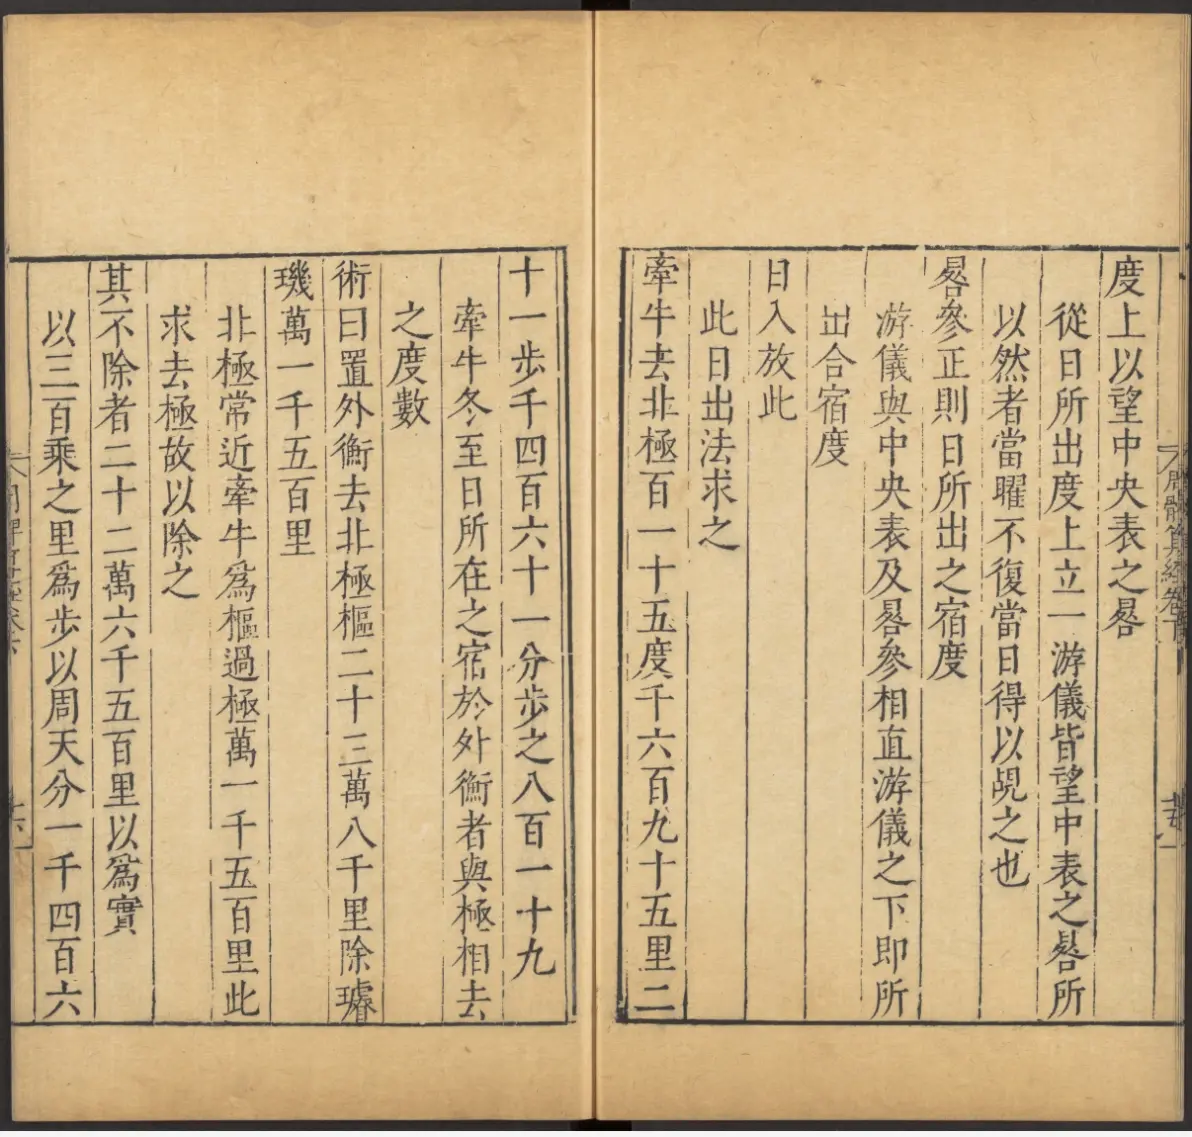 周髀算經卷下
度上以望中央表之晷
從日所出度上立一游儀皆望中表之晷所
以然者當曜不復當日得以覘之也
晷參正則日所出之宿度
游儀與中央表及晷參相直游儀之下即所
出合宿度
日入放此
此日出法求之
牽牛去北極百一十五度千六百九十五里二
十一步千四百六十一分步之八百一十九
牽牛冬至日所在之宿於外衡者與極相去
之度數
術曰置外衡去北極樞二十三萬八千里除璿
璣萬一千五百里
北極常近牽牛爲樞過極萬一千五百里此
求去極故以除之
其不除者二十二萬六千五百里以爲實
以三百乘之里爲步以周天分一千四百六